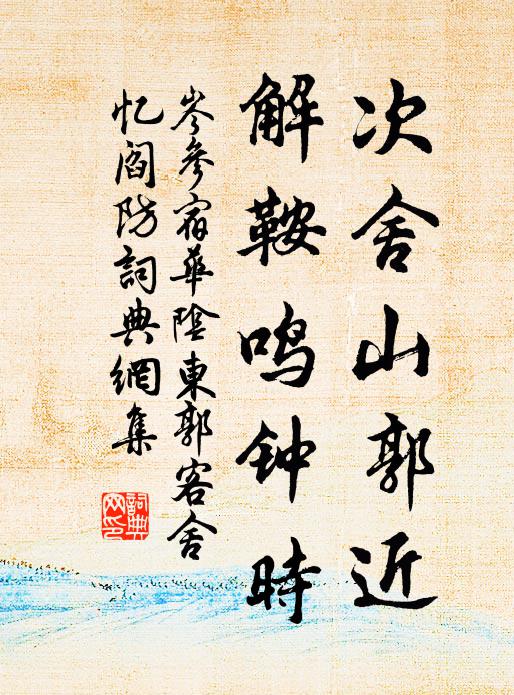 次舍山郭近
解鞍鸣钟時
岑參宿華陰東郭客舍
忆閻防詞典網集
詞典网印